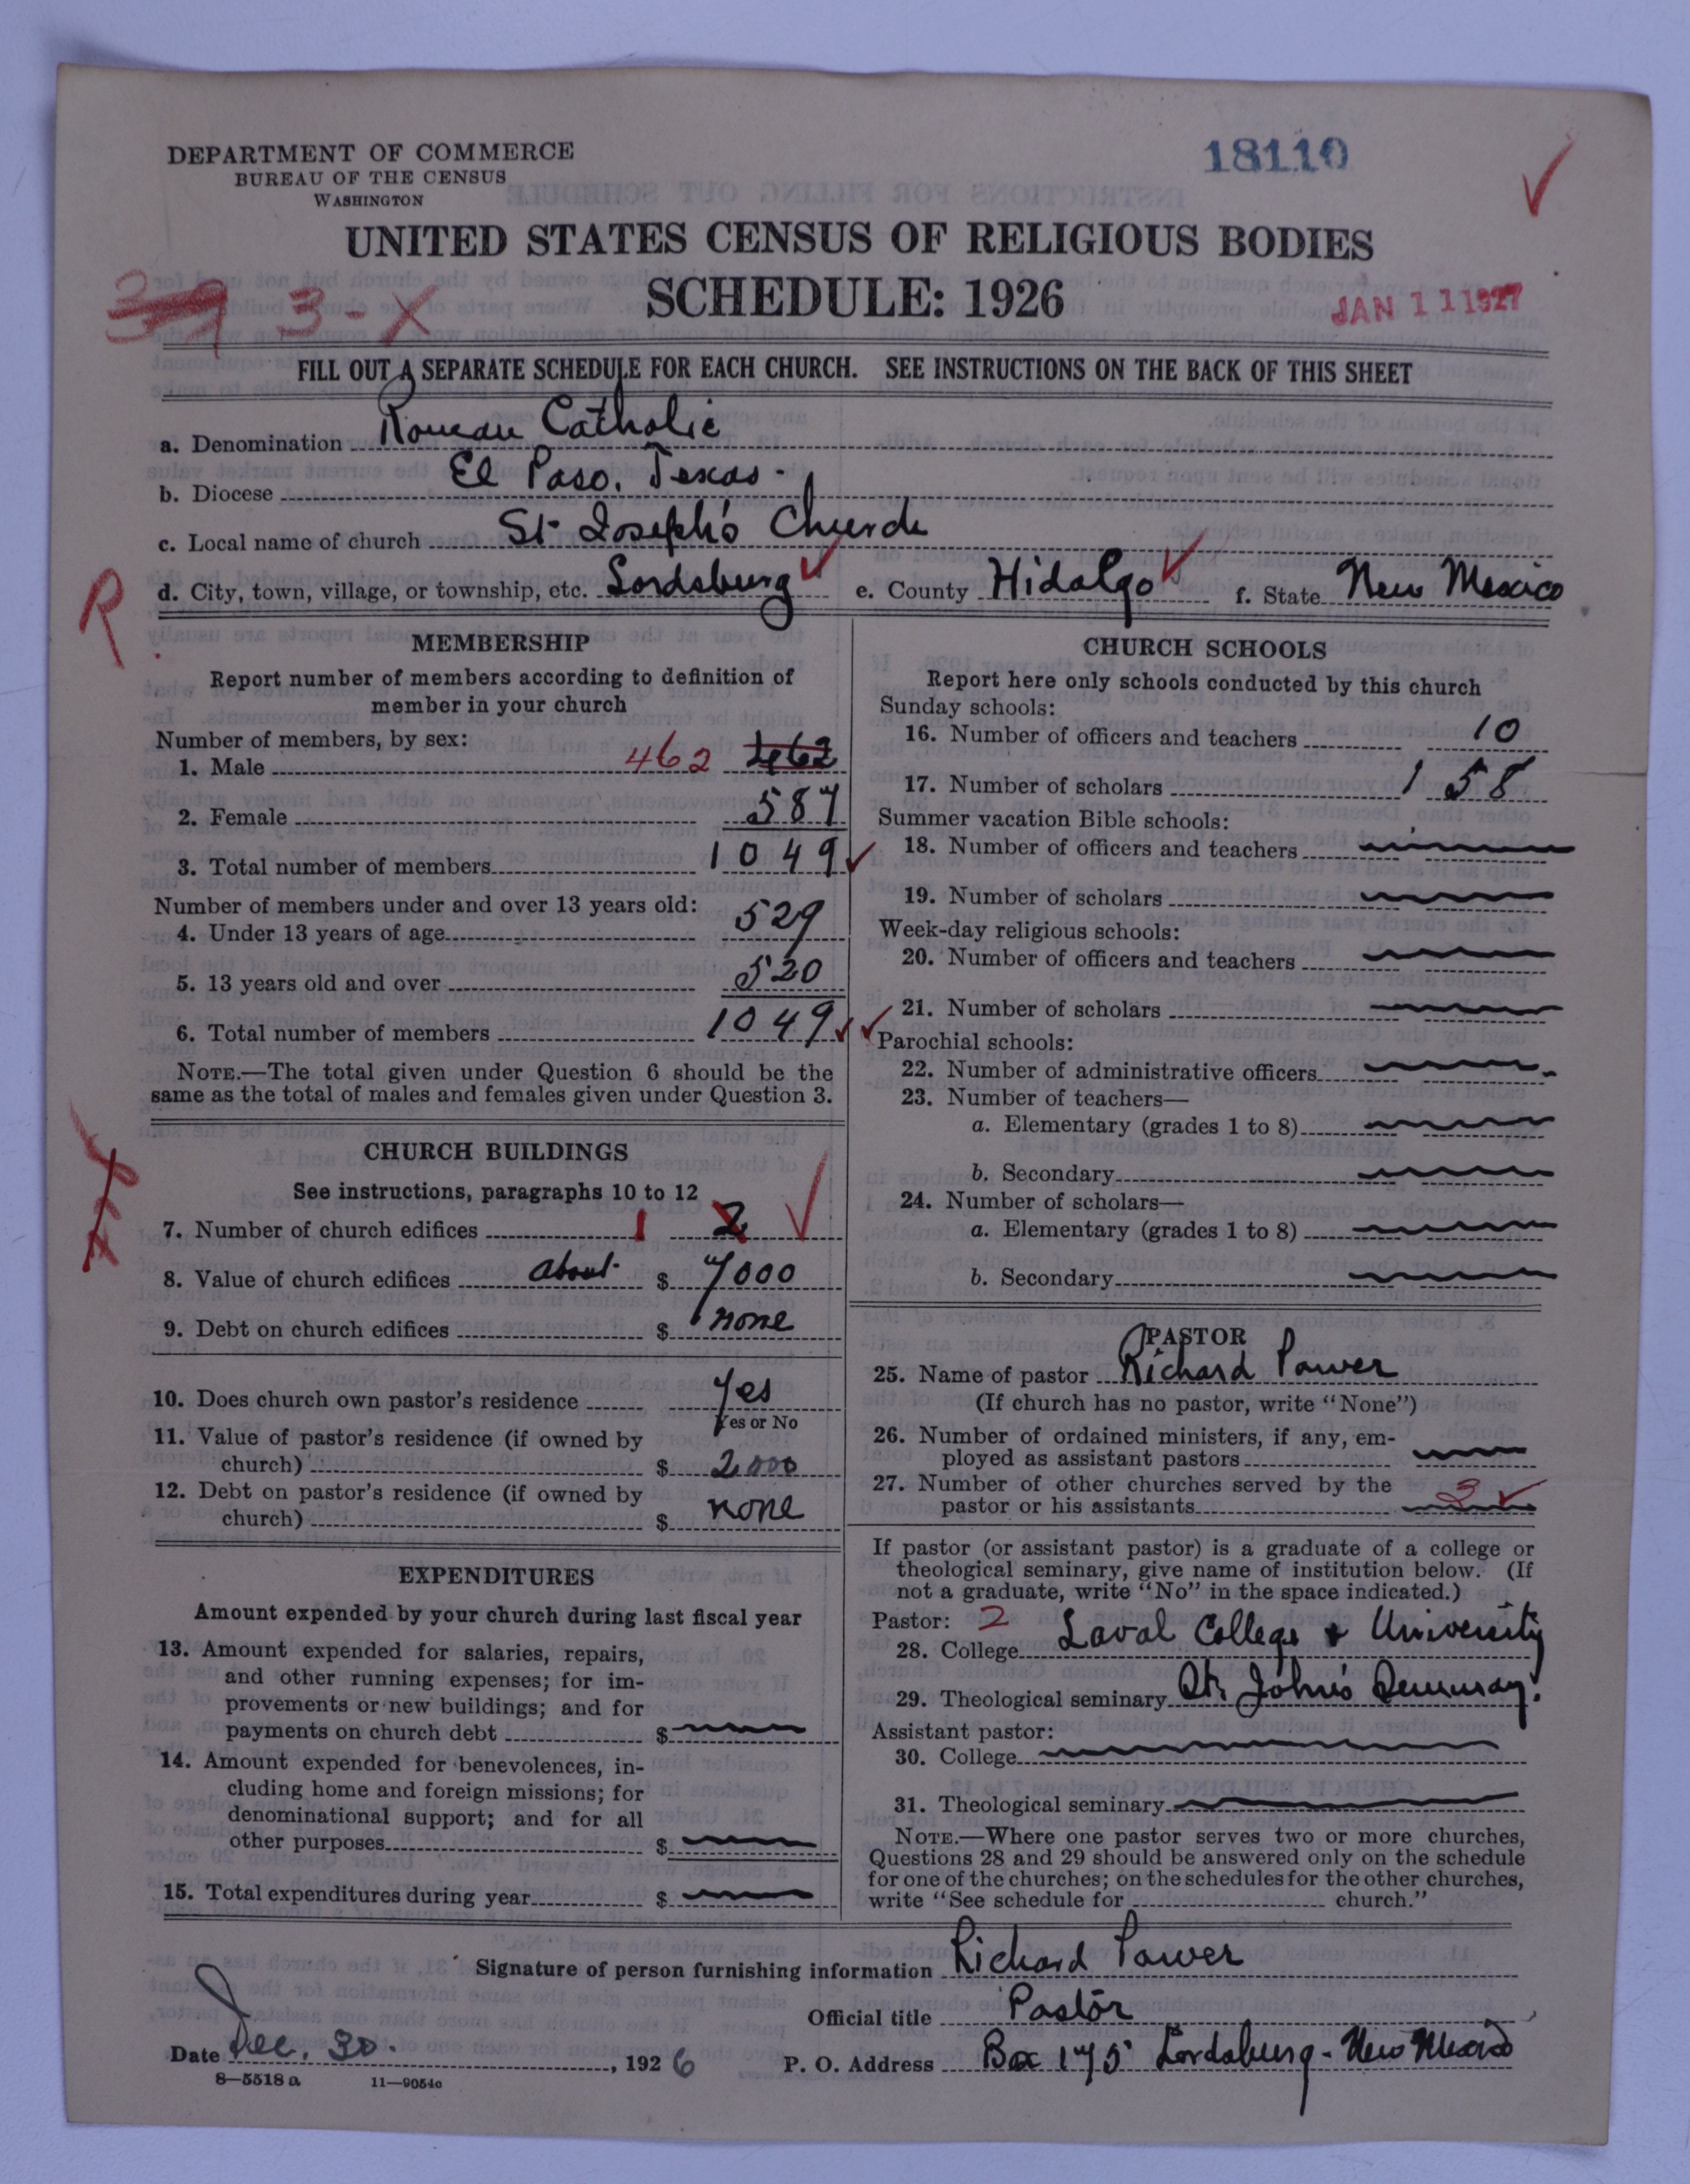 DEPARTMENT OF COMMERCE
BUREAU OF THE CENSUS
WASHINGTON
18110
UNITED STATES CENSUS OF RELIGIOUS BODIES
SCHEDULE: 1926
3-X
JAN 11 1927
FILL OUT A SEPARATE SCHEDULE FOR EACH CHURCH. SEE INSTRUCTIONS ON THE BACK OF THIS SHEET
a. Denomination Roman Catholic
b. Diocese El Paso, Texas-
c. Local name of church St Joseph's Church
R
d. City, town, village, or township, etc. Lordsburg e. County Hidalgo f. State New Mexico
MEMBERSHIP
Report number of members according to definition of
member in your church
Number of members, by sex:
1. Male 462 462
2. Female 587
3. Total number of members 1049
Number of members under and over 13 years old:
4. Under 13 years of age 529
5. 13 years old and over 520
6. Total number of members 1049
NOTE.—The total given under Question 6 should be the
same as the total of males and females given under Question 3.
CHURCH BUILDINGS
See instructions, paragraphs 10 to 12
7. Number of church edifices 1 2
8. Value of church edifices about $ 7000
9. Debt on church edifices $ none
10. Does church own pastor's residence Yes
Yes or No
11. Value of pastor's residence (if owned by
church) $ 2000
12. Debt on pastor's residence (if owned by
church) $ none
EXPENDITURES
Amount expended by your church during last fiscal year
13. Amount expended for salaries, repairs,
and other running expenses; for im-
provements or new buildings; and for
payments on church debt $
14. Amount expended for benevolences, in-
cluding home and foreign missions; for
denominational support; and for all
other purposes $
15. Total expenditures during year $
CHURCH SCHOOLS
Report here only schools conducted by this church
Sunday schools:
16. Number of officers and teachers 10
17. Number of scholars 158
Summer vacation Bible schools:
18. Number of officers and teachers
19. Number of scholars
Week-day religious schools:
20. Number of officers and teachers
21. Number of scholars
Parochial schools:
22. Number of administrative officers
23. Number of teachers—
a. Elementary (grades 1 to 8)
b. Secondary
24. Number of scholars—
a. Elementary (grades 1 to 8)
b. Secondary
PASTOR
25. Name of pastor Richard Power
(If church has no pastor, write "None")
26. Number of ordained ministers, if any, em-
ployed as assistant pastors
27. Number of other churches served by the
pastor or his assistants 3
If pastor (or assistant pastor) is a graduate of a college or
theological seminary, give name of institution below. (If
not a graduate, write "No" in the space indicated.)
Pastor: 2
28. College Laval College & University
29. Theological seminary St. John's Seminary.
Assistant pastor:
30. College
31. Theological seminary
NOTE.—Where one pastor serves two or more churches,
Questions 28 and 29 should be answered only on the schedule
for one of the churches; on the schedules for the other churches,
write "See schedule for church."
Signature of person furnishing information Richard Power
Official title Pastor
Date Dec. 30. , 1926 P. O. Address Box 175 Lordsburg - New Mexico
8—5518 a 11—9054c